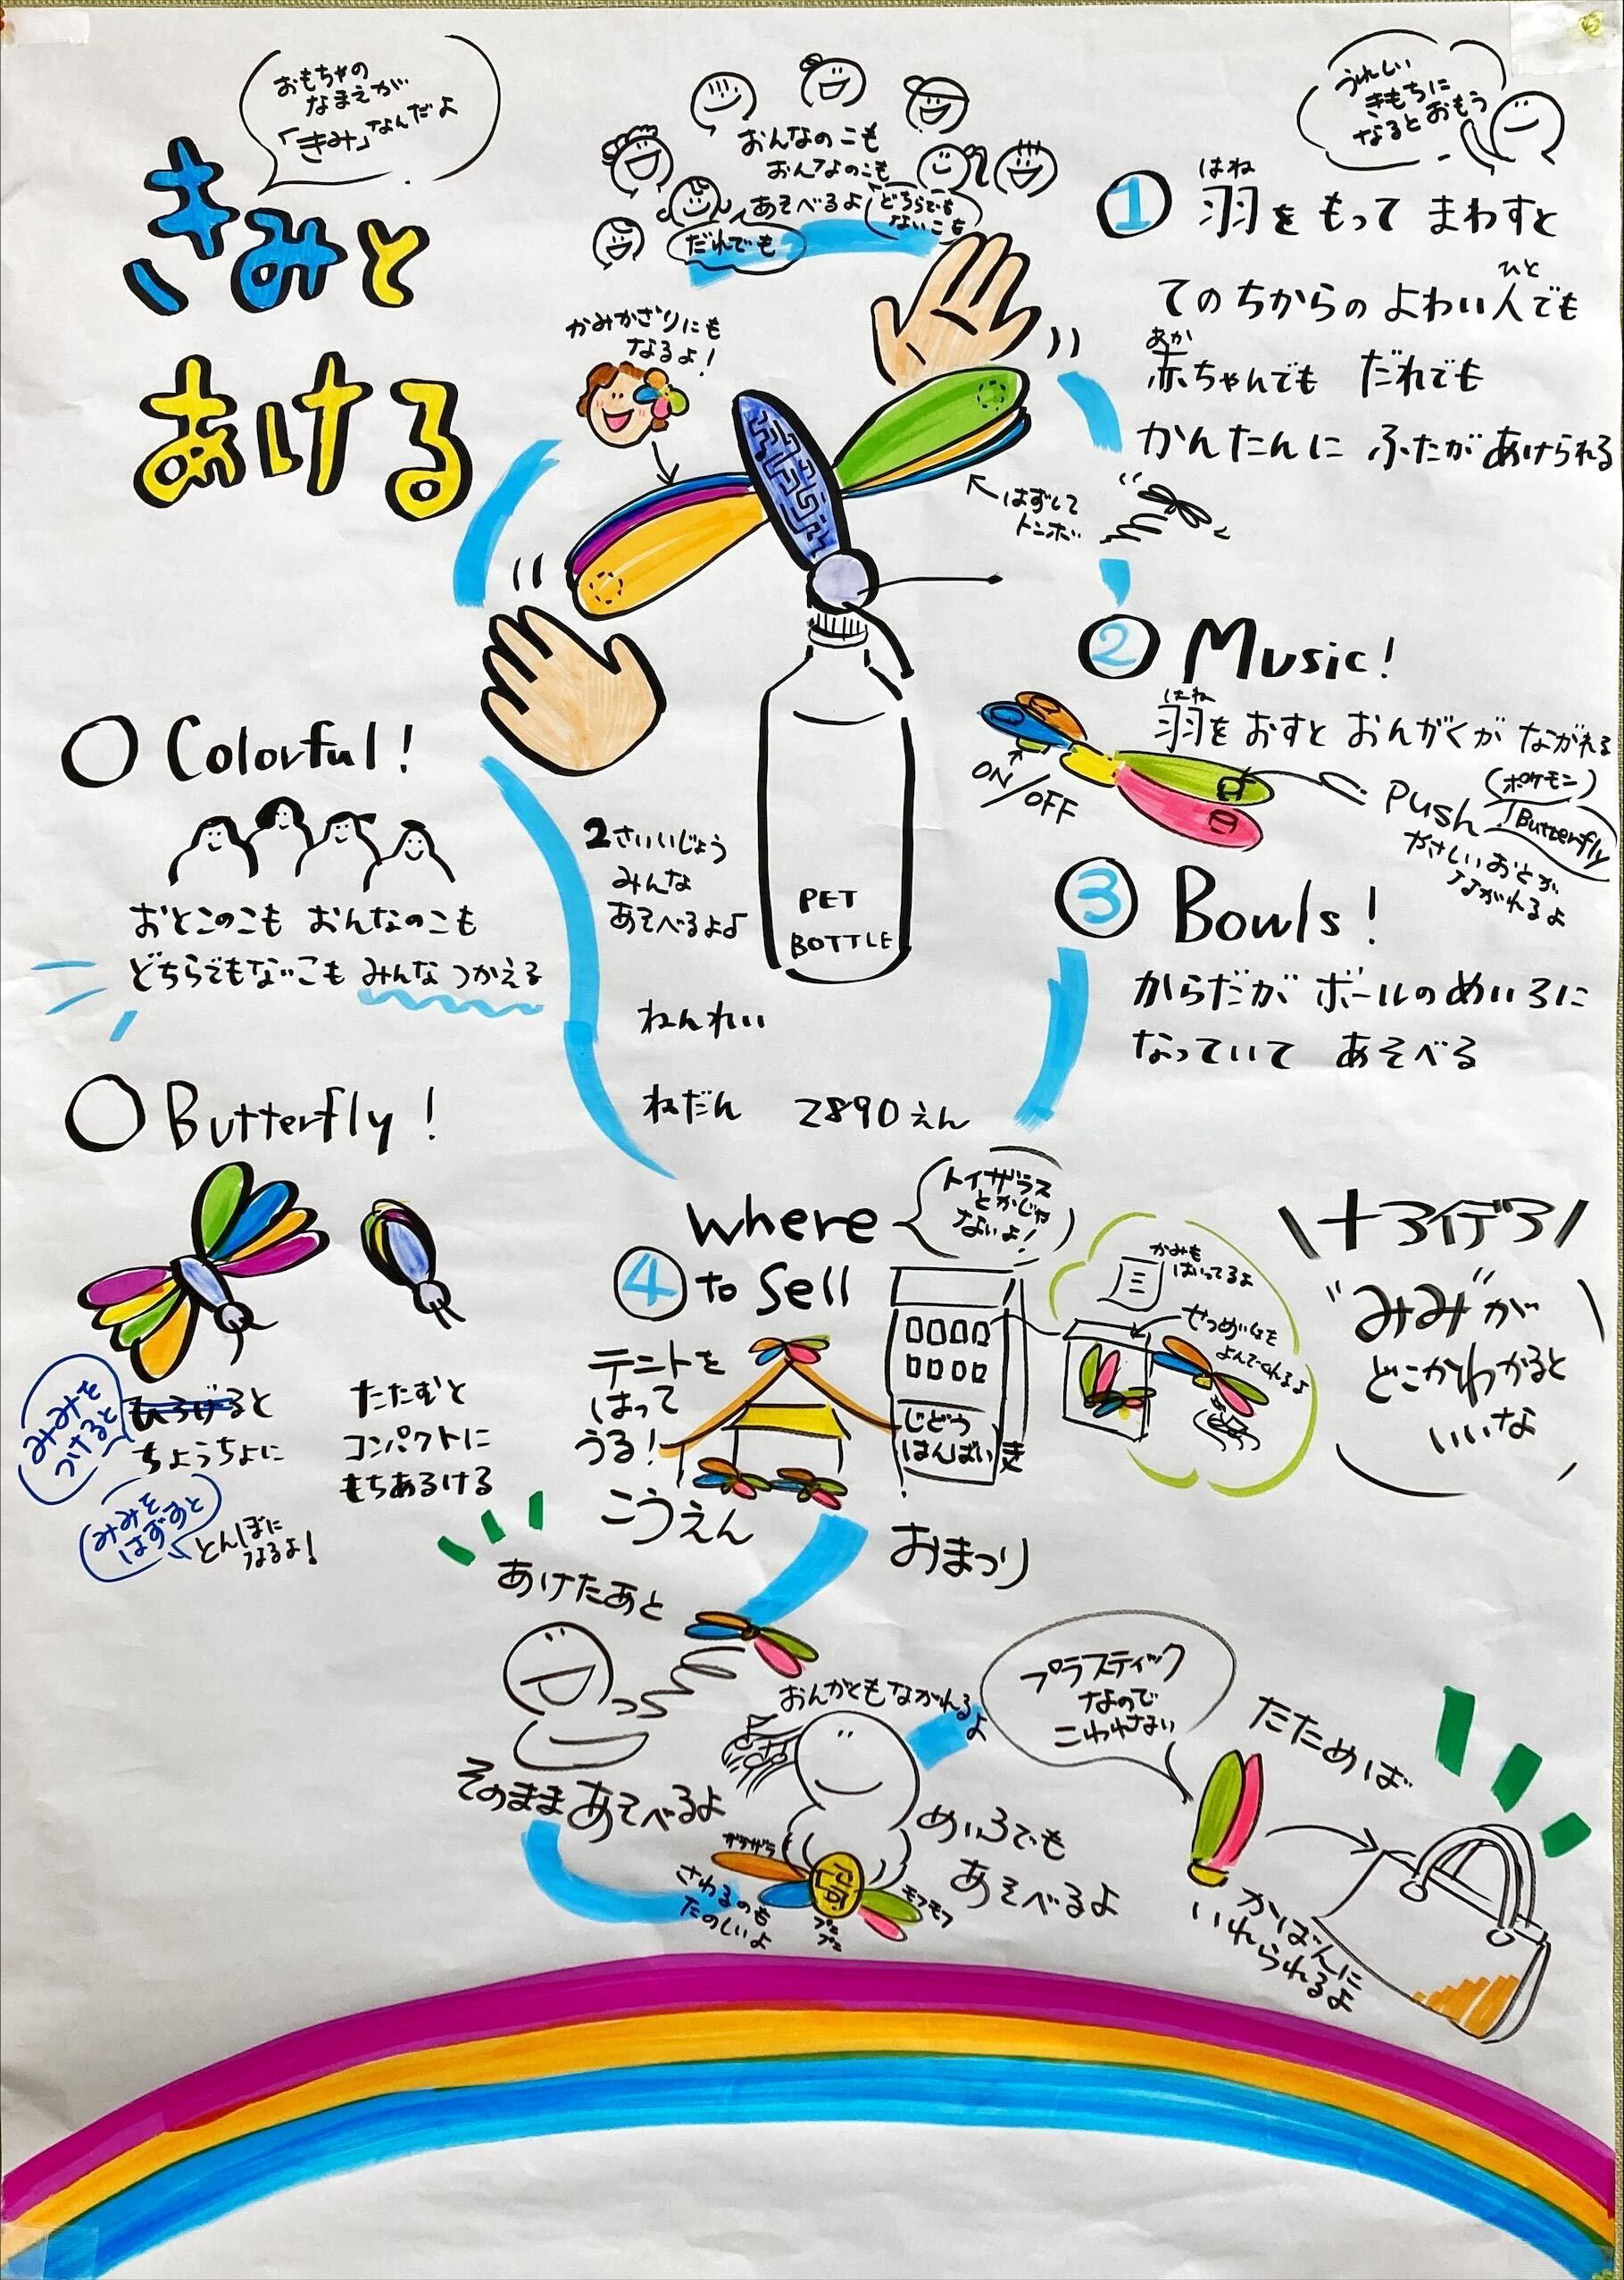 おもちゃの
なまえが
「きみ」なんだよ
きみと
あける
おんなのこも
おんなのこも
あそべるよ
どちらでも
ないこも
だれでも
うれしい
きもちに
なるとおもう
① 羽をもってまわすと
はね
てのちからのよわい人でも
ひと
赤ちゃんでも だれでも
あか
かんたんに ふたがあけられる
かみかざりにも
なるよ!
はずして
トンボ
② Music!
羽をおすと おんがくが ながれる
はね
ON/OFF
Push
(ポケモン)
Butterfly
やさしいおとが
ながれるよ
○ Colorful!
おとこのこも おんなのこも
どちらでもないこも みんなつかえる
2さいいじょう
みんな
あそべるよ
PET
BOTTLE
③ Bowls!
からだが ボールのめいろに
なっていて あそべる
ねんれい
ねだん 2890えん
○ Butterfly!
みみを
つけると
ひろげると
ちょうちょに
みみを
はずすと
とんぼに
なるよ!
たたむと
コンパクトに
もちあるける
where
④ to sell
トイザラス
とかじゃ
ないよ!
テントを
はって
うる!
こうえん
じどう
はんばいき
おまつり
かみも
はいってるよ
せつめいも
よんでくれるよ
"みみ"が
どこかわかると
いいな
あけたあと
そのままあそべるよ
おんがくもながれるよ
めいろでも
あそべるよ
さわるのも
たのしいよ
モフモフ
プラスティック
なので
こわれない
たためば
かばんに
いれられるよ